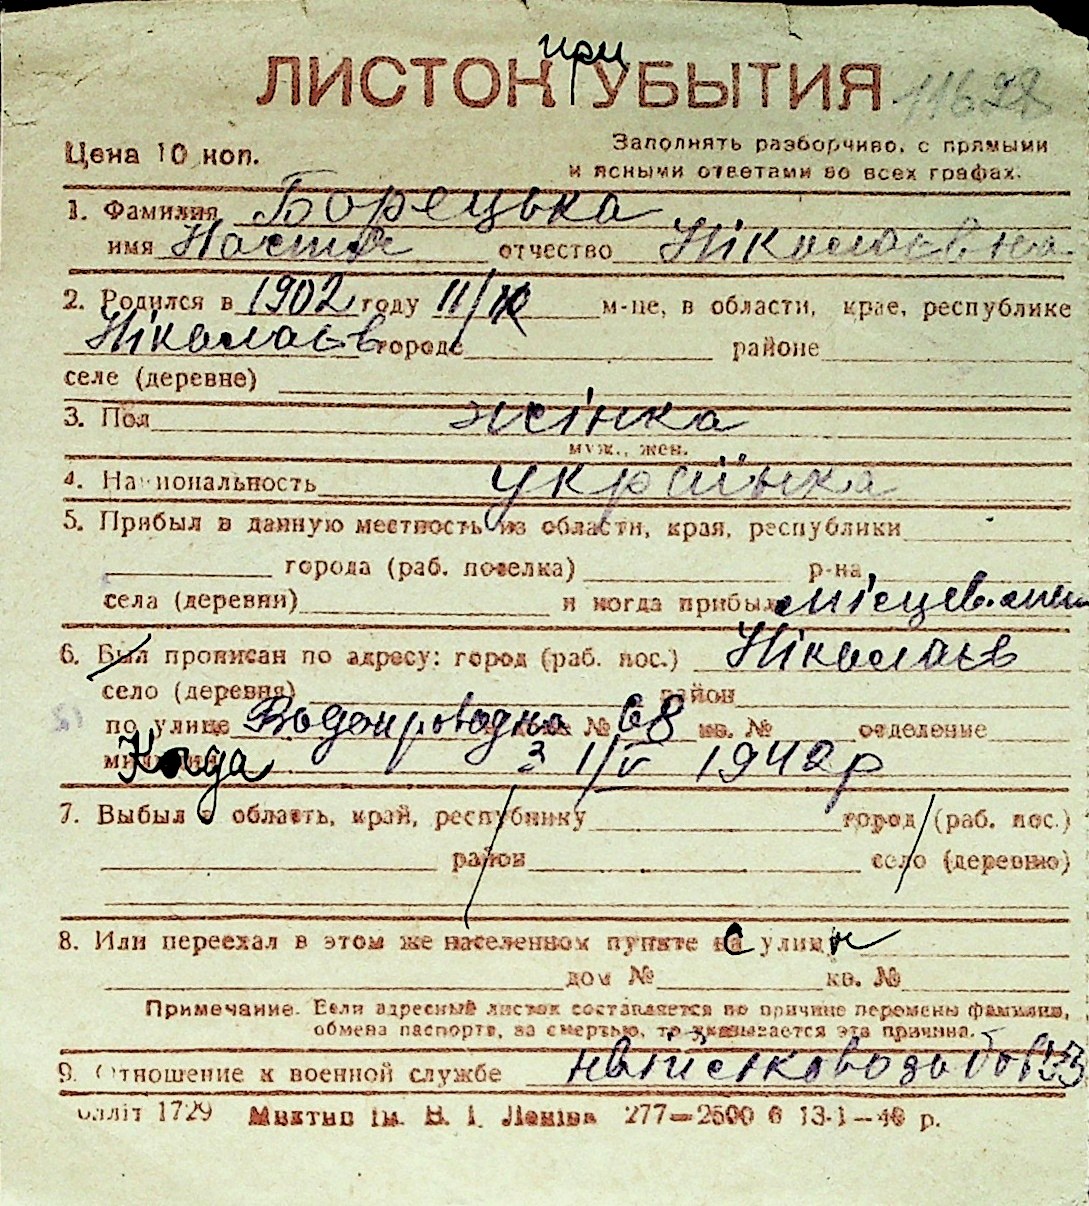 при
ЛИСТОК УБЫТИЯ 11628
Цена 10 коп.
Заполнять разборчиво, с прямыми
и ясными ответами во всех графах.
1. Фамилия Борецька
имя Настя отчество Ніколаєвна
2. Родился в 1902 году 11/IX м-це, в области, крае, республике
Ніколаєв городе районе
селе (деревне)
3. Пол жінка
муж., жен.
4. Национальность українка
5. Прибыл в данную местность из области, края, республики
города (раб. поселка) р-на
села (деревни) и когда прибыл
6. Был прописан по адресу: город (раб. пос.) Ніколаєв
село (деревня) район
по улице Водопроводна дом № 68 кв. № отделение
милиции Когда з 1/V 1942 р
7. Выбыл в область, край, республику город (раб. пос.)
район село (деревню)
8. Или переехал в этом же населенном пункте с улицы
дом № кв. №
Примечание. Если адресный листок составляется по причине перемены фамилии,
обмена паспорта, за смертью, то указывается эта причина.
9. Отношение к военной службе
1729 Миктип ім. В. І. Леніна 277—2500 б 13-1—40 р.